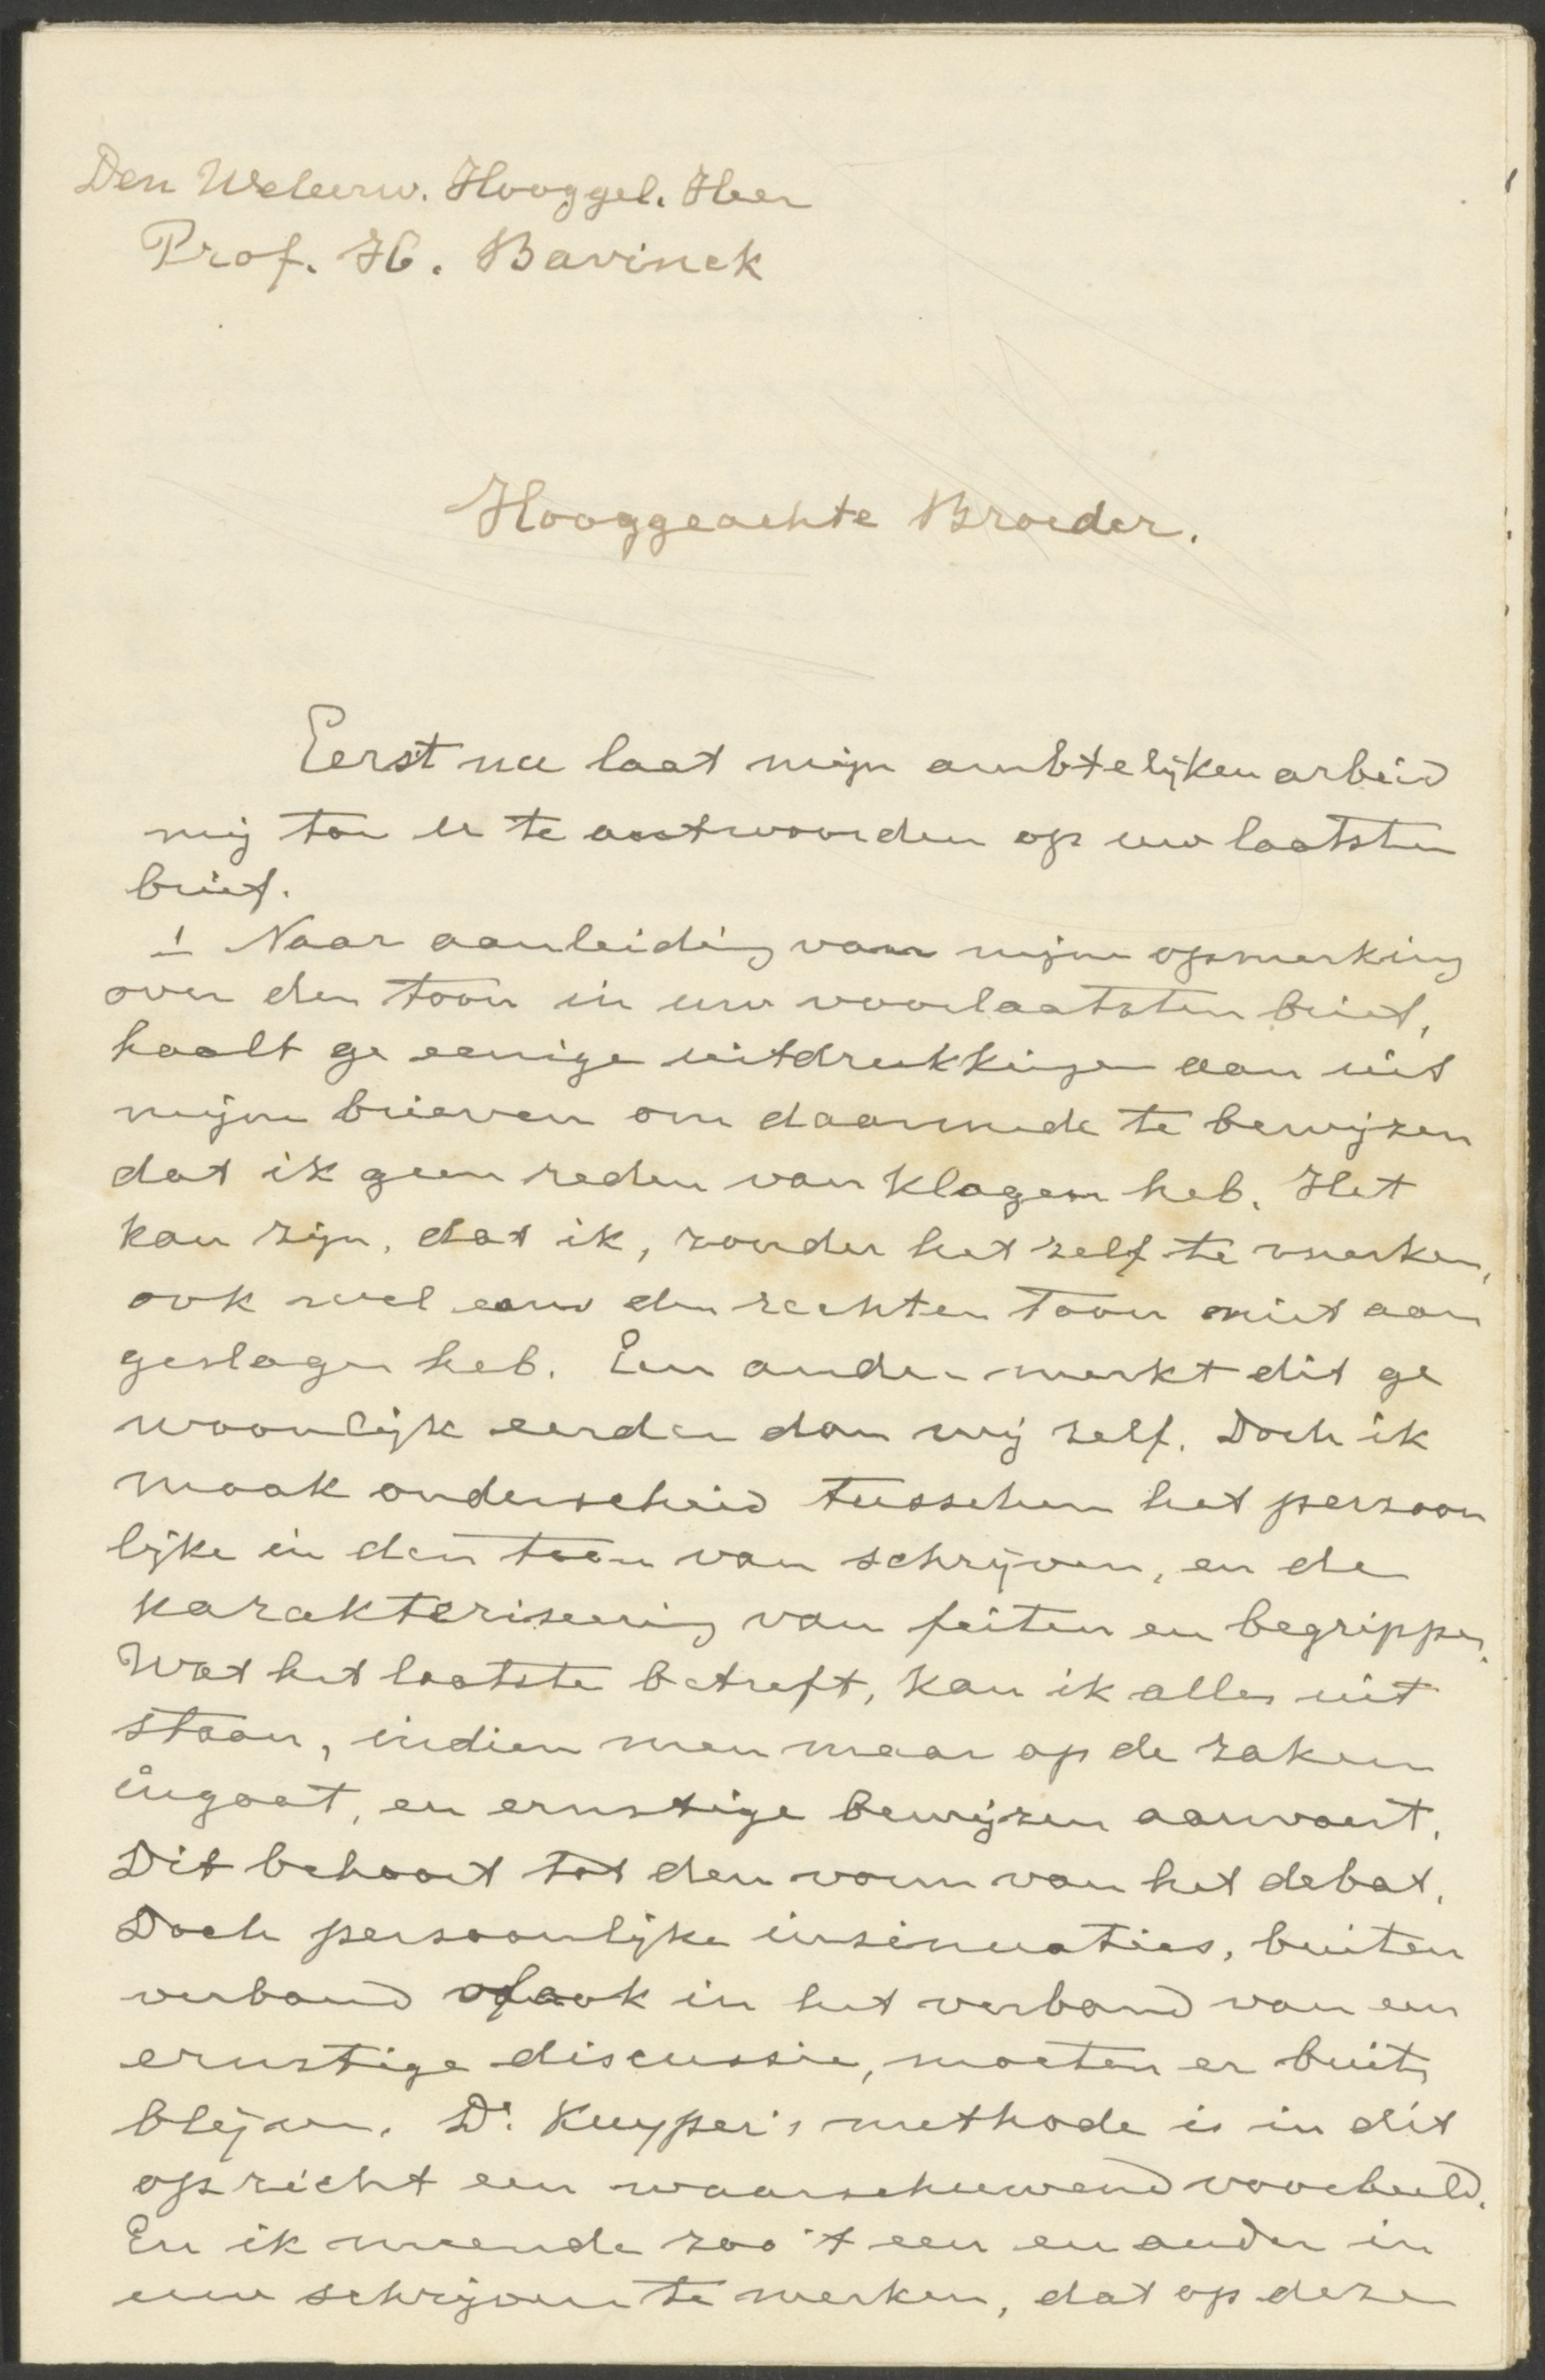 Den Weleerw. Hooggel. Heer
Prof. H. Bavinck
Hooggeachte Broeder.
Eerst nu laat mijn ambtelijken arbeid
mij toe u te antwoorden op uw laatsten
brief.
1 Naar aanleiding van mijne opmerking
over den toon in uw voorlaatsten brief,
haalt ge eenige uitdrukkingen aan uit
mijne brieven om daarmede te bewijzen
dat ik geen reden van klagen heb. Het
kan zijn, dat ik, zonder het zelf te merken,
ook wel eens den rechten toon niet aan
geslagen heb. Een ander merkt dit ge
woonlijk eerder dan wij zelf. Doch ik
maak onderscheid tusschen het persoon
lijke in den toon van schrijven, en de
karakteriseering van feiten en begrippen.
Wat het laatste betreft, kan ik alles uit
staan, indien men maar op de zaken
ingaat, en ernstige bewijzen aanvoert.
Dit behoort tot den vorm van het debat.
Doch persoonlijke insinuaties, buiten
verband of ook in het verband van een
ernstige discussie, moeten er buiten
blijven. Dr. Kuyper's methode is in dit
opzicht een waarschuwend voorbeeld.
En ik meende zoo 't een en ander in
uw schrijven te merken, dat op deze